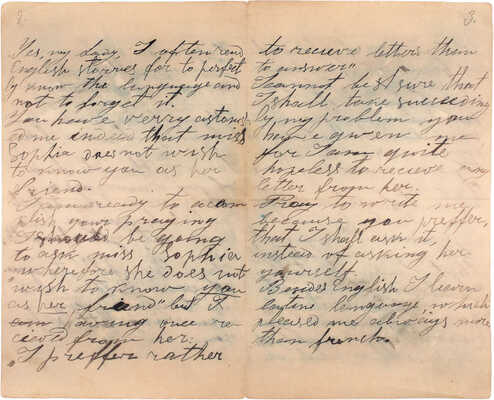 2.
Yes, my dear, I often read
English storries for to perfect
ly know the language and
not to forget it.
You have verry astonish
ed me indeed that miss
Sophia does not wish
to know you as her
friend.
I am ready to accom
plish your praying
I should be going
to ask miss Sophia
"wherefore she does not
wish to know you
as her friend" but I
having once re
ceivd from her:
"I preffer rather
3.
to recieve letters then
to answer".
I cannot be sure that
I shall tane succeeding
ly my problem you
have given me
for I am quite
hopeless to recieve any
letter from her.
Pray to write my
because you preffer,
that I shall ask it,
instead of asking her
yourself.
Besides English I learn
language which
pleased me always more
then french.